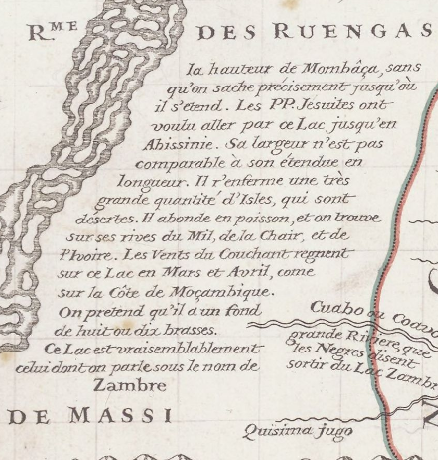 R.ME DES RUENGAS
la hauteur de Mombâça, sans
qu'on sache précisement jusqu'où
il s'étend. Les PP. Jesuites ont
voulu aller par ce Lac jusqu'en
Abissinie. Sa largeur n'est pas
comparable à son étendue en
longueur. Il r'enferme une très
grande quantité d'Isles, qui sont
désertes. Il abonde en poisson, et on trouve
sur ses rives du Mil, de la Chair, et de
l'Ivoire. Les Vents du Couchant regnent
sur ce Lac en Mars et Avril, come
sur la Côte de Moçambique.
On prétend qu'il a un fond
de huit ou dix brasses.
Ce Lac est vraisemblablement
celui dont on parle sous le nom de
Zambre
Cuabo ou Coavo
grande Riviere, que
les Negros disent
sortir du Lac Zambre
DE MASSI
Quisima jugo